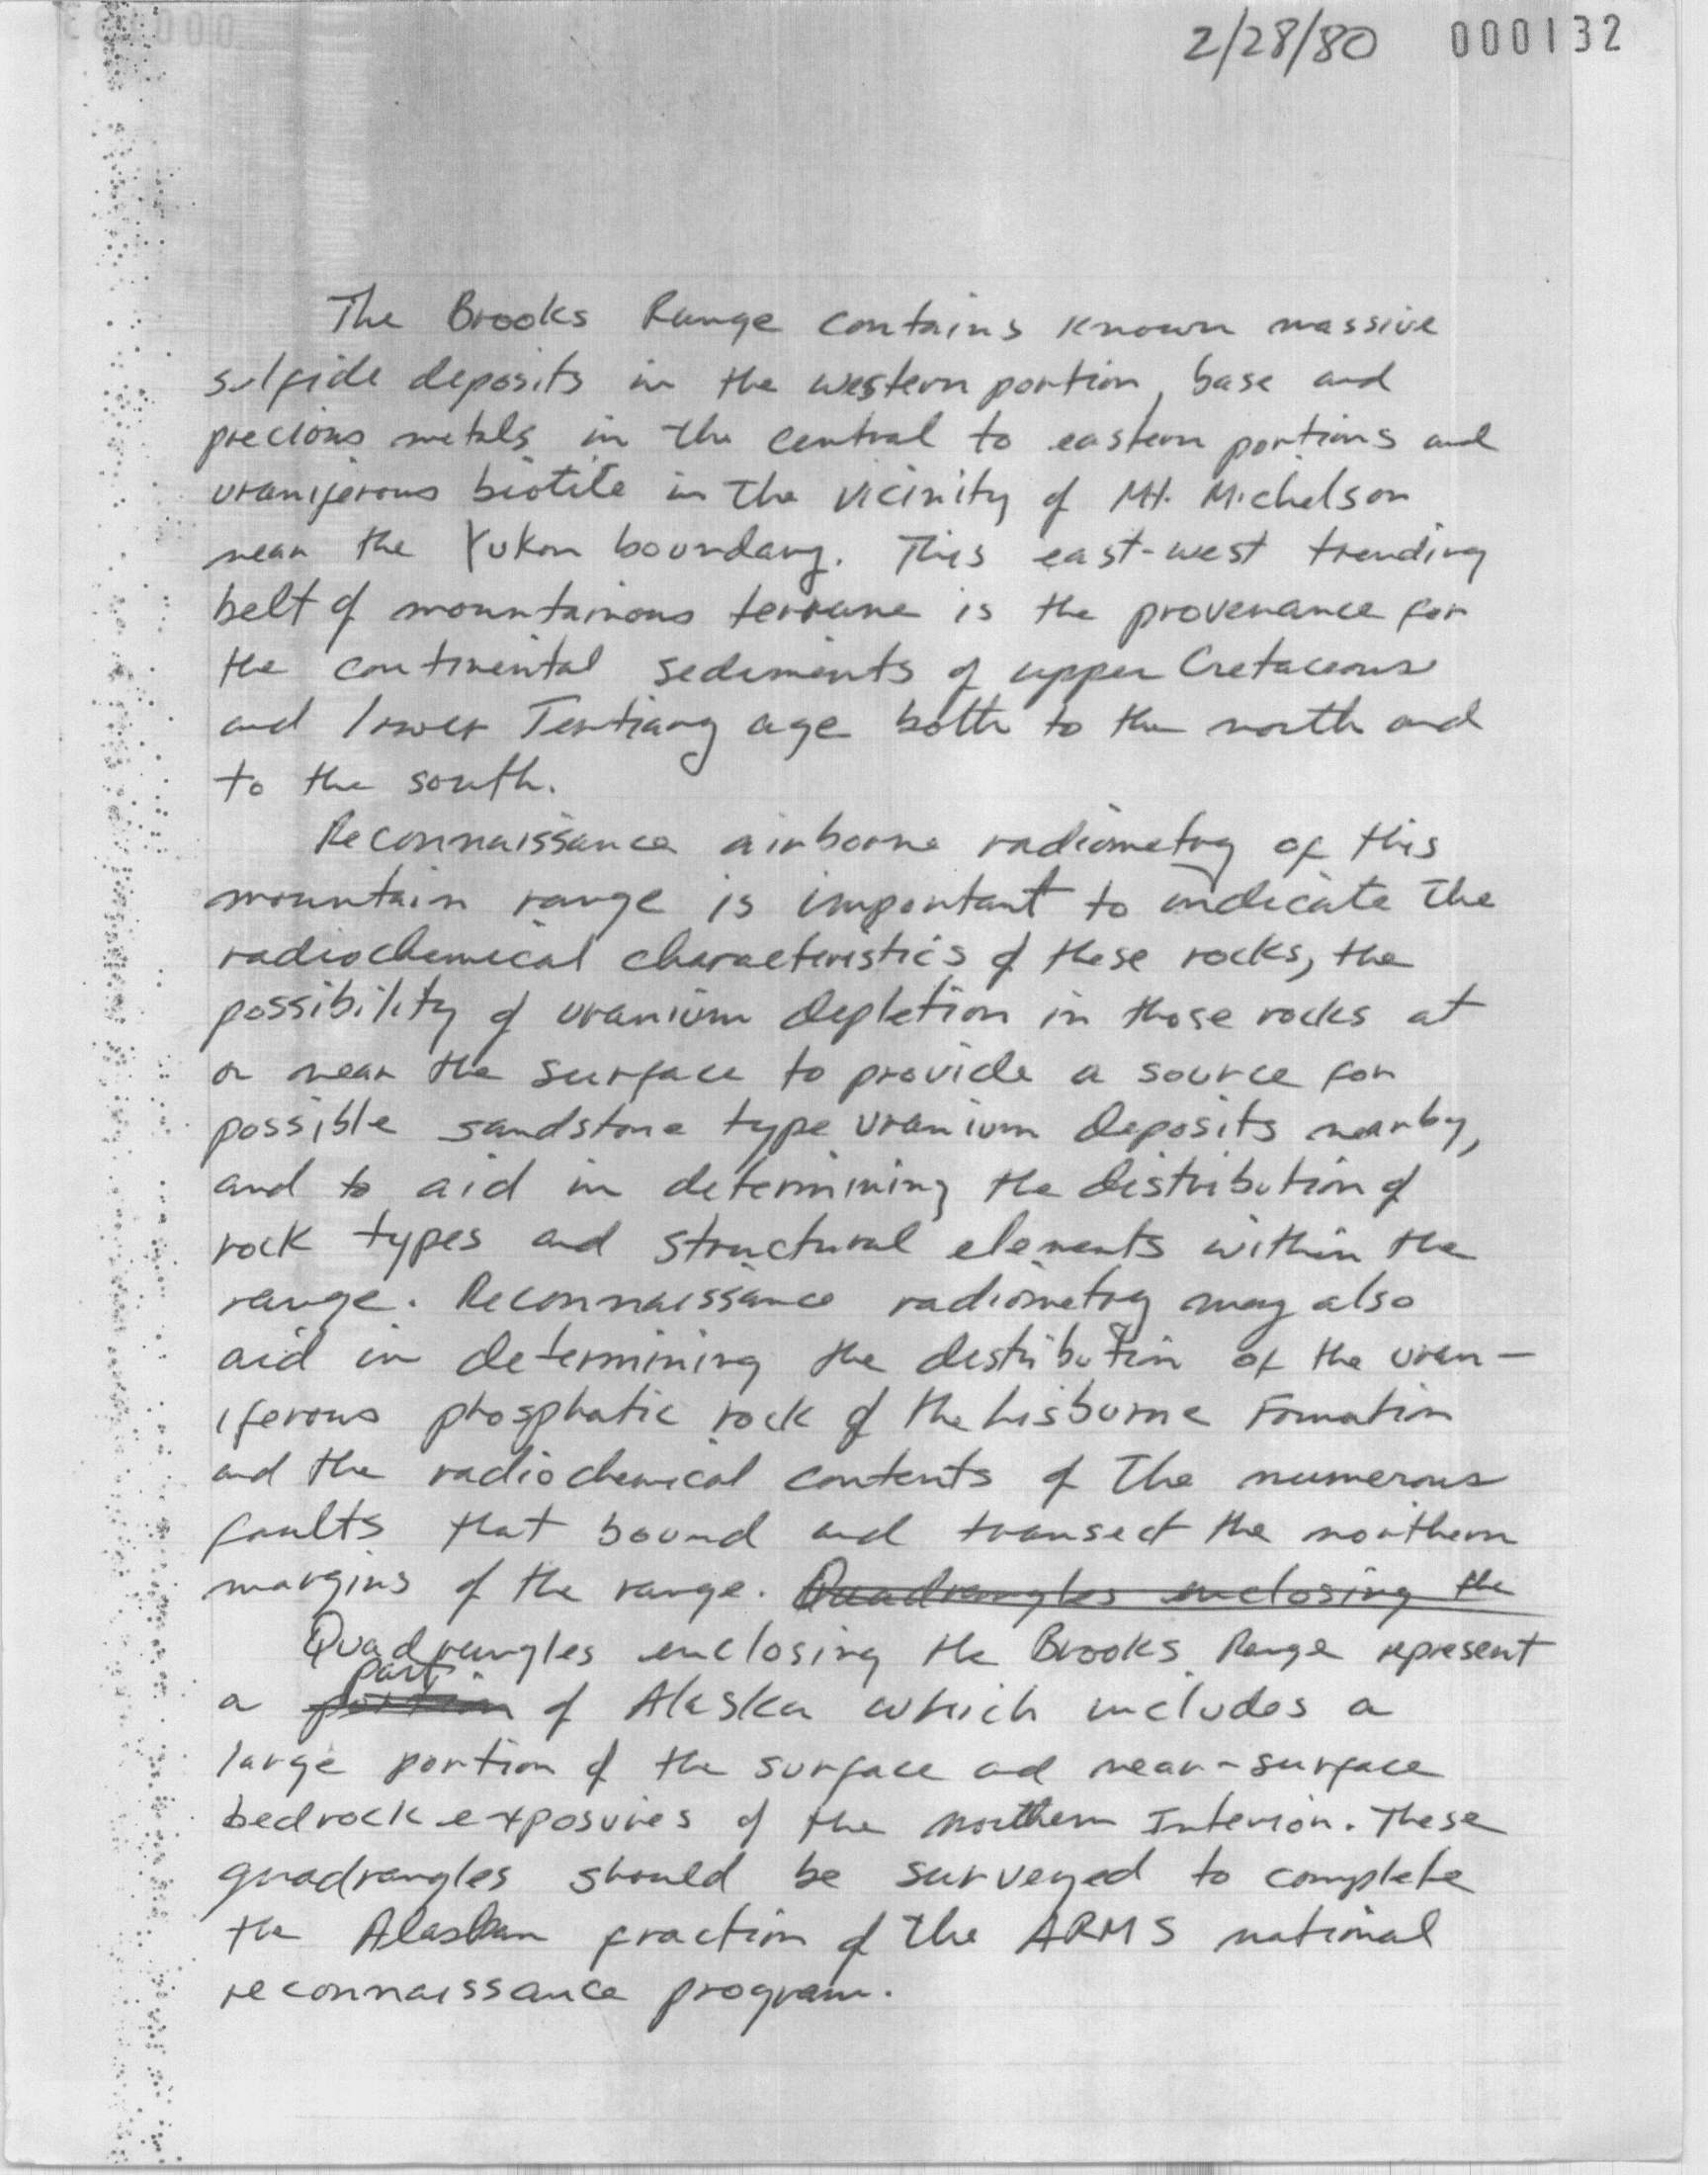 2/28/80 000132
The Brooks Range contains known massive
sulfide deposits in the western portion, base and
precious metals in the central to eastern portions and
uraniferous biotite in the vicinity of Mt. Michelson
near the Yukon boundary. This east-west trending
belt of mountainous terrane is the provenance for
the continental sediments of upper Cretaceous
and lower Tertiary age both to the north and
to the south.
Reconnaissance airborne radiometry of this
mountain range is important to indicate the
radiochemical characteristics of these rocks, the
possibility of uranium depletion in those rocks at
or near the surface to provide a source for
possible sandstone type uranium deposits nearby,
and to aid in determining the distribution of
rock types and structural elements within the
range. Reconnaissance radiometry may also
aid in determining the distribution of the uran-
iferous phosphatic rock of the Lisburne Formation
and the radiochemical contents of the numerous
faults that bound and transect the northern
margins of the range. Quadrangles enclosing the
Quadrangles enclosing the Brooks Range represent
part
a portion of Alaska which includes a
large portion of the surface and near-surface
bedrock exposures of the northern Interior. These
quadrangles should be surveyed to complete
the Alaskan fraction of the ARMS national
reconnaissance program.